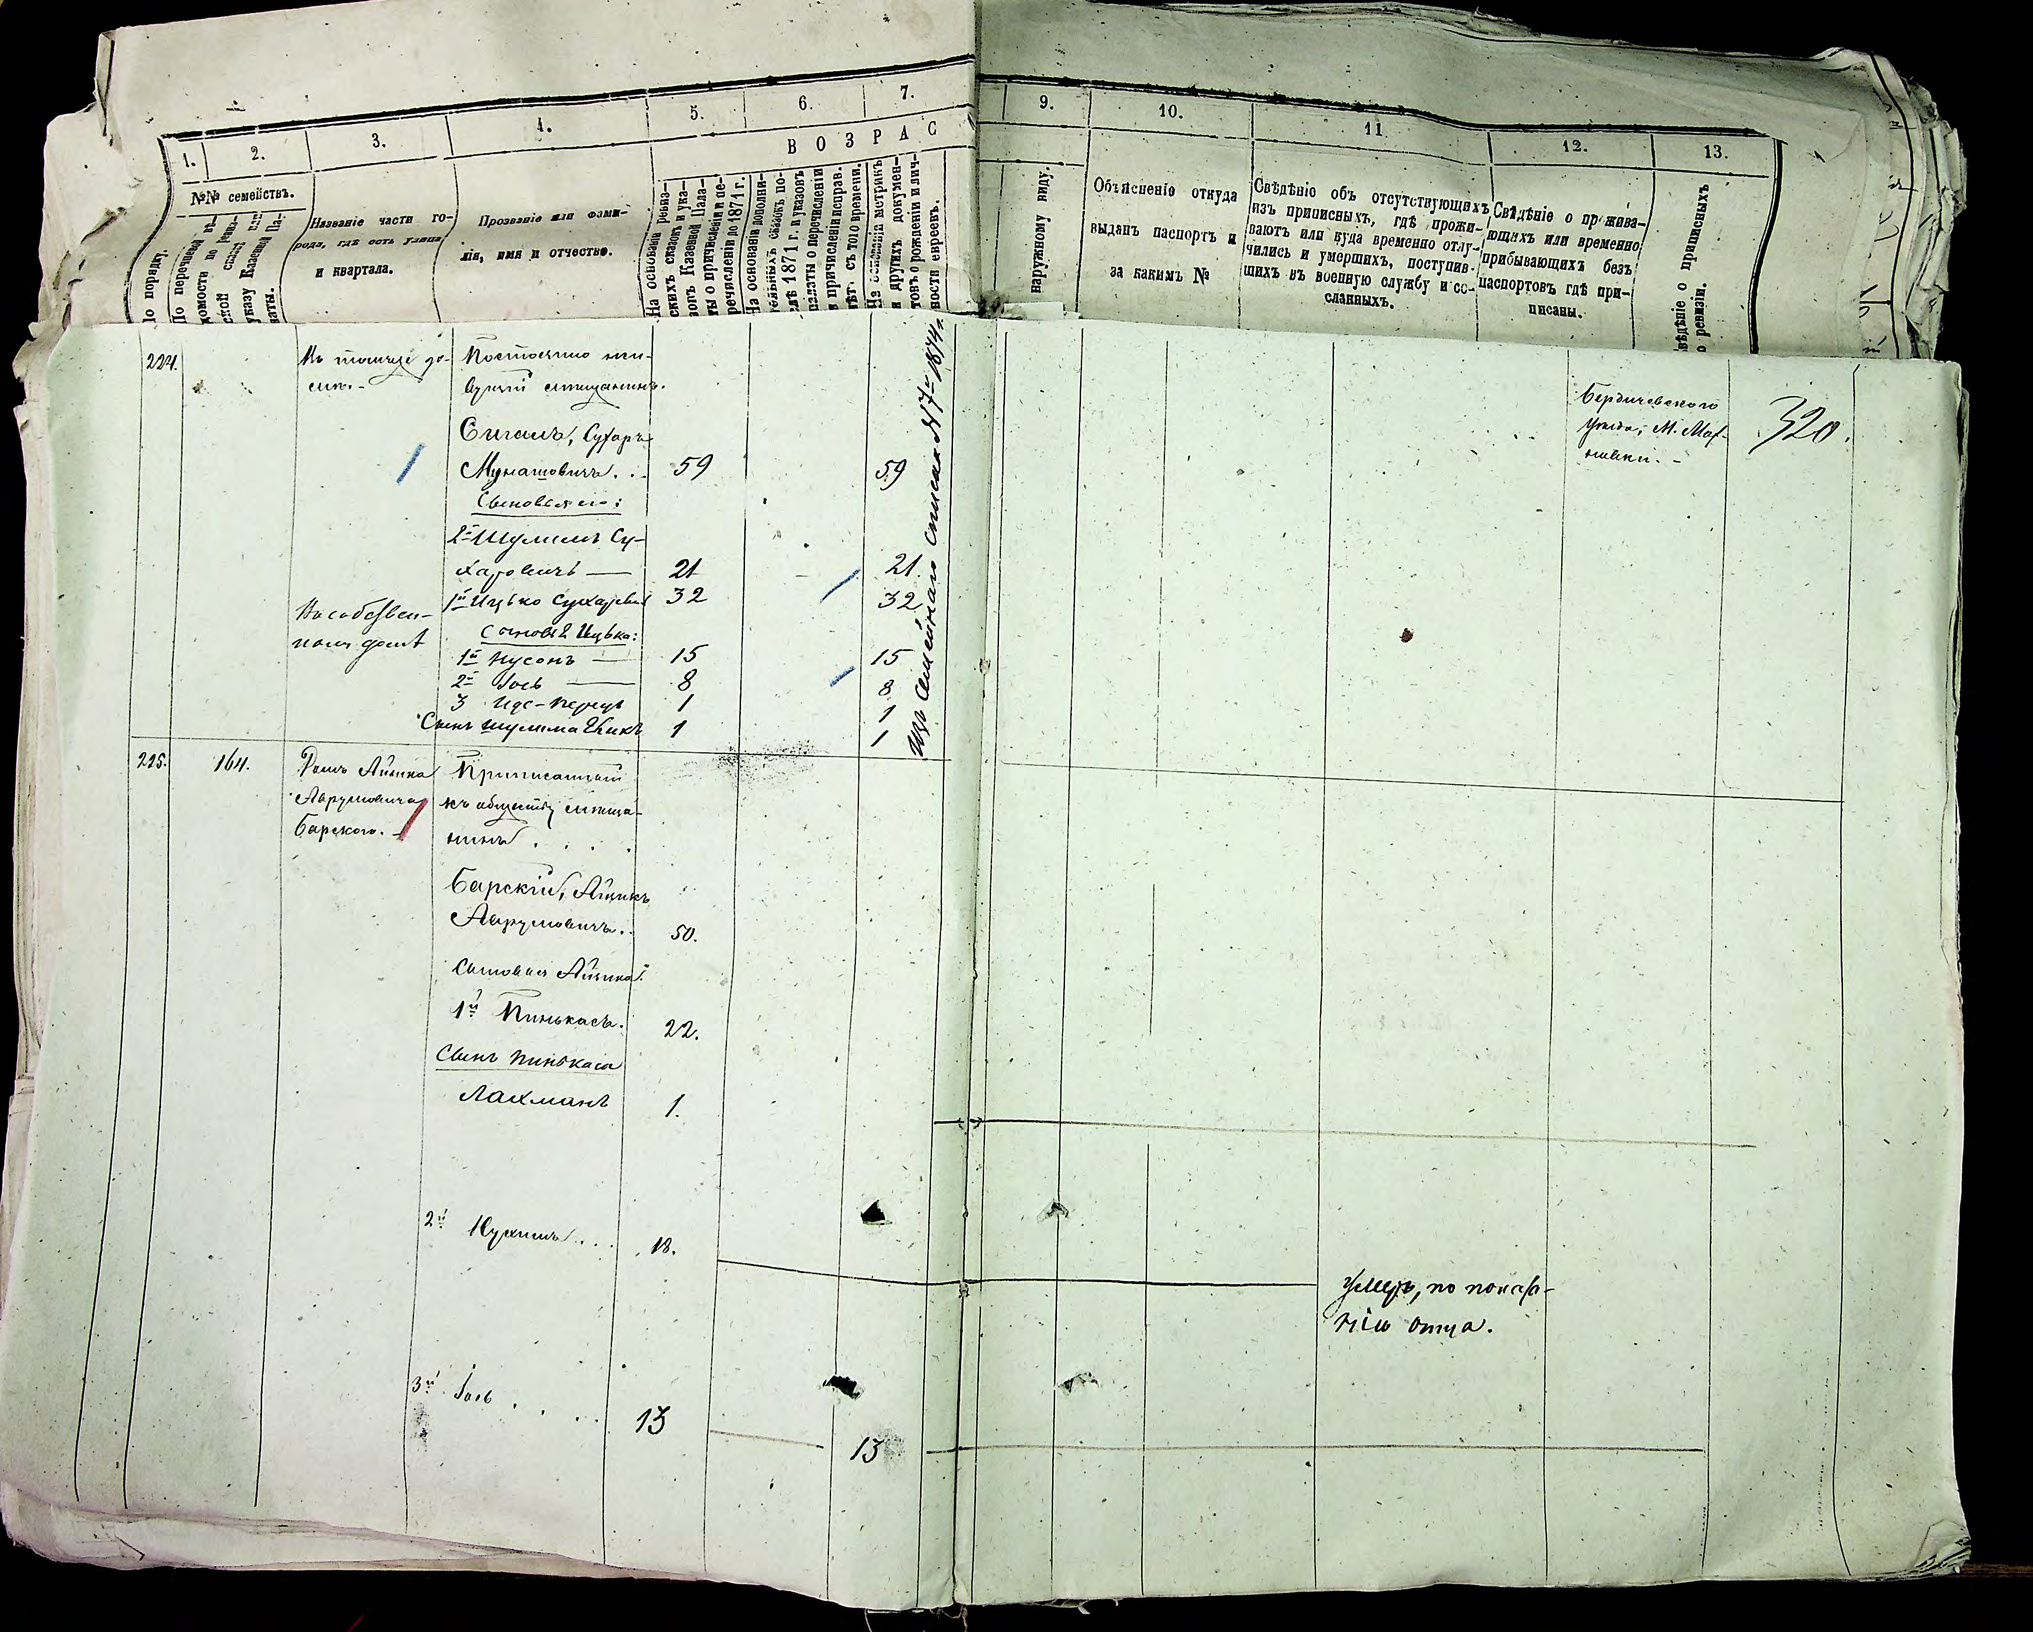 1. 2. 3. 4. 5. 6. 7. 9. 10. 11. 12. 13.
В О З Р А С
№№ семействъ.
По порядку.
указу Казенной Па-
латы.
Названіе части го-
рода, гдѣ есть улица
и квартала.
Прозваніе или фами-
лія, имя и отчество.
На основаніи ревиз-
скихъ сказокъ и ука-
зовъ Казенной Пала-
ты о причисленіи и пе-
речисленіи до 1871 г.
На основаніи дополни-
тельныхъ сказокъ по-
слѣ 1871 г. и указовъ
палаты о перечисленіи
и причисленіи исправ.
лѣт. съ того времени.
На основаніи метрикъ
и другихъ докумен-
товъ о рожденіи и лич-
ности евреевъ.
наружному виду.
Объясненіе откуда
выданъ паспортъ и
за какимъ №
Свѣдѣніе объ отсутствующихъ
изъ приписныхъ, гдѣ прожи-
ваютъ или куда временно отлу-
чились и умершихъ, поступив-
шихъ въ военную службу и со-
сланныхъ.
Свѣдѣніе о прожива-
ющихъ или временно
прибывающихъ безъ
паспортовъ гдѣ при-
писаны.
Свѣдѣніе о приписныхъ
по ревизіи.
224.
Постоянно жи-
вущій мѣщанинъ.
Сигалъ, Сухаръ
Мунашовичъ. . . 59 59
Сыновья его:
2й Шулимъ Су-
харовичъ — 21 21
1й Ицько Сухаровичъ 32 32
На собствен-
номъ домѣ
Сыновья Ицька:
1й Нусонъ — 15 15
2й Іось — 8 8
3 1 1
Сынъ Шулима 1 1
Изъ Семейнаго списка № 7й 1874 г.
Бердичевскаго
уѣзда, М. Мах-
новки. -
320.
225. 164.
Домъ Айзика
Аврумовича
Барского. -
Приписанный
къ обществу мѣща-
нинъ . . . .
Барскій, Айзикъ
Аврумовичъ. . 50.
Сыновья Айзика:
1й Пинькасъ. 22.
Сынъ Пинькаса
Лахманъ 1.
2й Нухимъ . . . 18.
Умеръ, по показа-
нію отца.
3й Іось . . . . 13
13